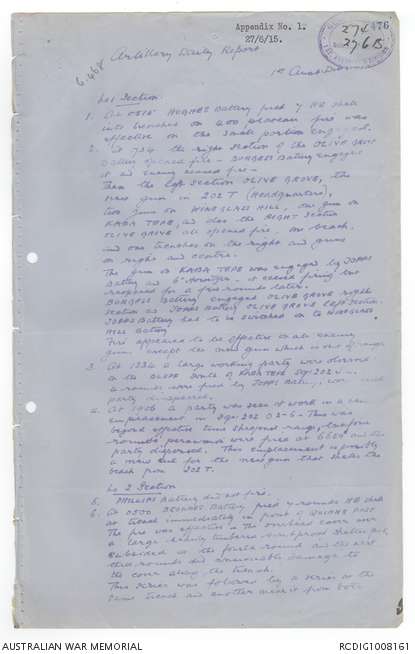 Appendix No. 1.
27/6/15.
476
274
276B
G.468
Artillery Daily Report
1st Aust Division
No 1 Section
1. At 0515 HUGHES Battery fired 7 HE shells
into trenches on 400 plateau fire was
effective on the small portion engaged.
2. At 724 the right section of the OLIVE GROVE
Battery opened fire - BURGESS Battery engaged
it and enemy ceased fire -
Then the left section OLIVE GROVE, the
new gun in 202 T (Headquarters),
two guns on WINE GLASS HILL, one gun on
KABA TEPE, and also the RIGHT Section
OLIVE GROVE all opened fire, on beach,
and our trenches on the right and guns
on right and centre.
The gun on KABA TEPE was engaged by
Battery and it ceased firing but
reopened for a few rounds later.
BURGESS Battery engaged OLIVE GROVE right
section as Battery OLIVE GROVE left section
Battery had to be switched on to WINEGLASS
HILL Battery
Fire appeared to be effective on all enemy
guns except the new gun which is out of range
3. At 1230 a large working party were observed
on the
rounds were fired by Battery, and
party dispersed.
4. At 1406 a party was seen at work in a
emplacement in Sqr 202 - This was
beyond effective time shrapnel range, but four
rounds percussion were fired at 6600 and the
party dispersed. This emplacement is possibly
a new one for the new gun that shells the
beach from 202T.
No 2 Section
5. PHILLIPS Battery did not fire.
6. At 0500 Battery fired 4 rounds HE shell
at trench immediately in front of QUINNS POST
The fire was effective - The overhead cover over
a large heavily timbered
subsided at the fourth round and the next
rounds did considerable damage to
the cover along the trench.
This series was followed by a series on the
same trench and another near it from both
AUSTRALIAN WAR MEMORIAL
RCDIG1008161